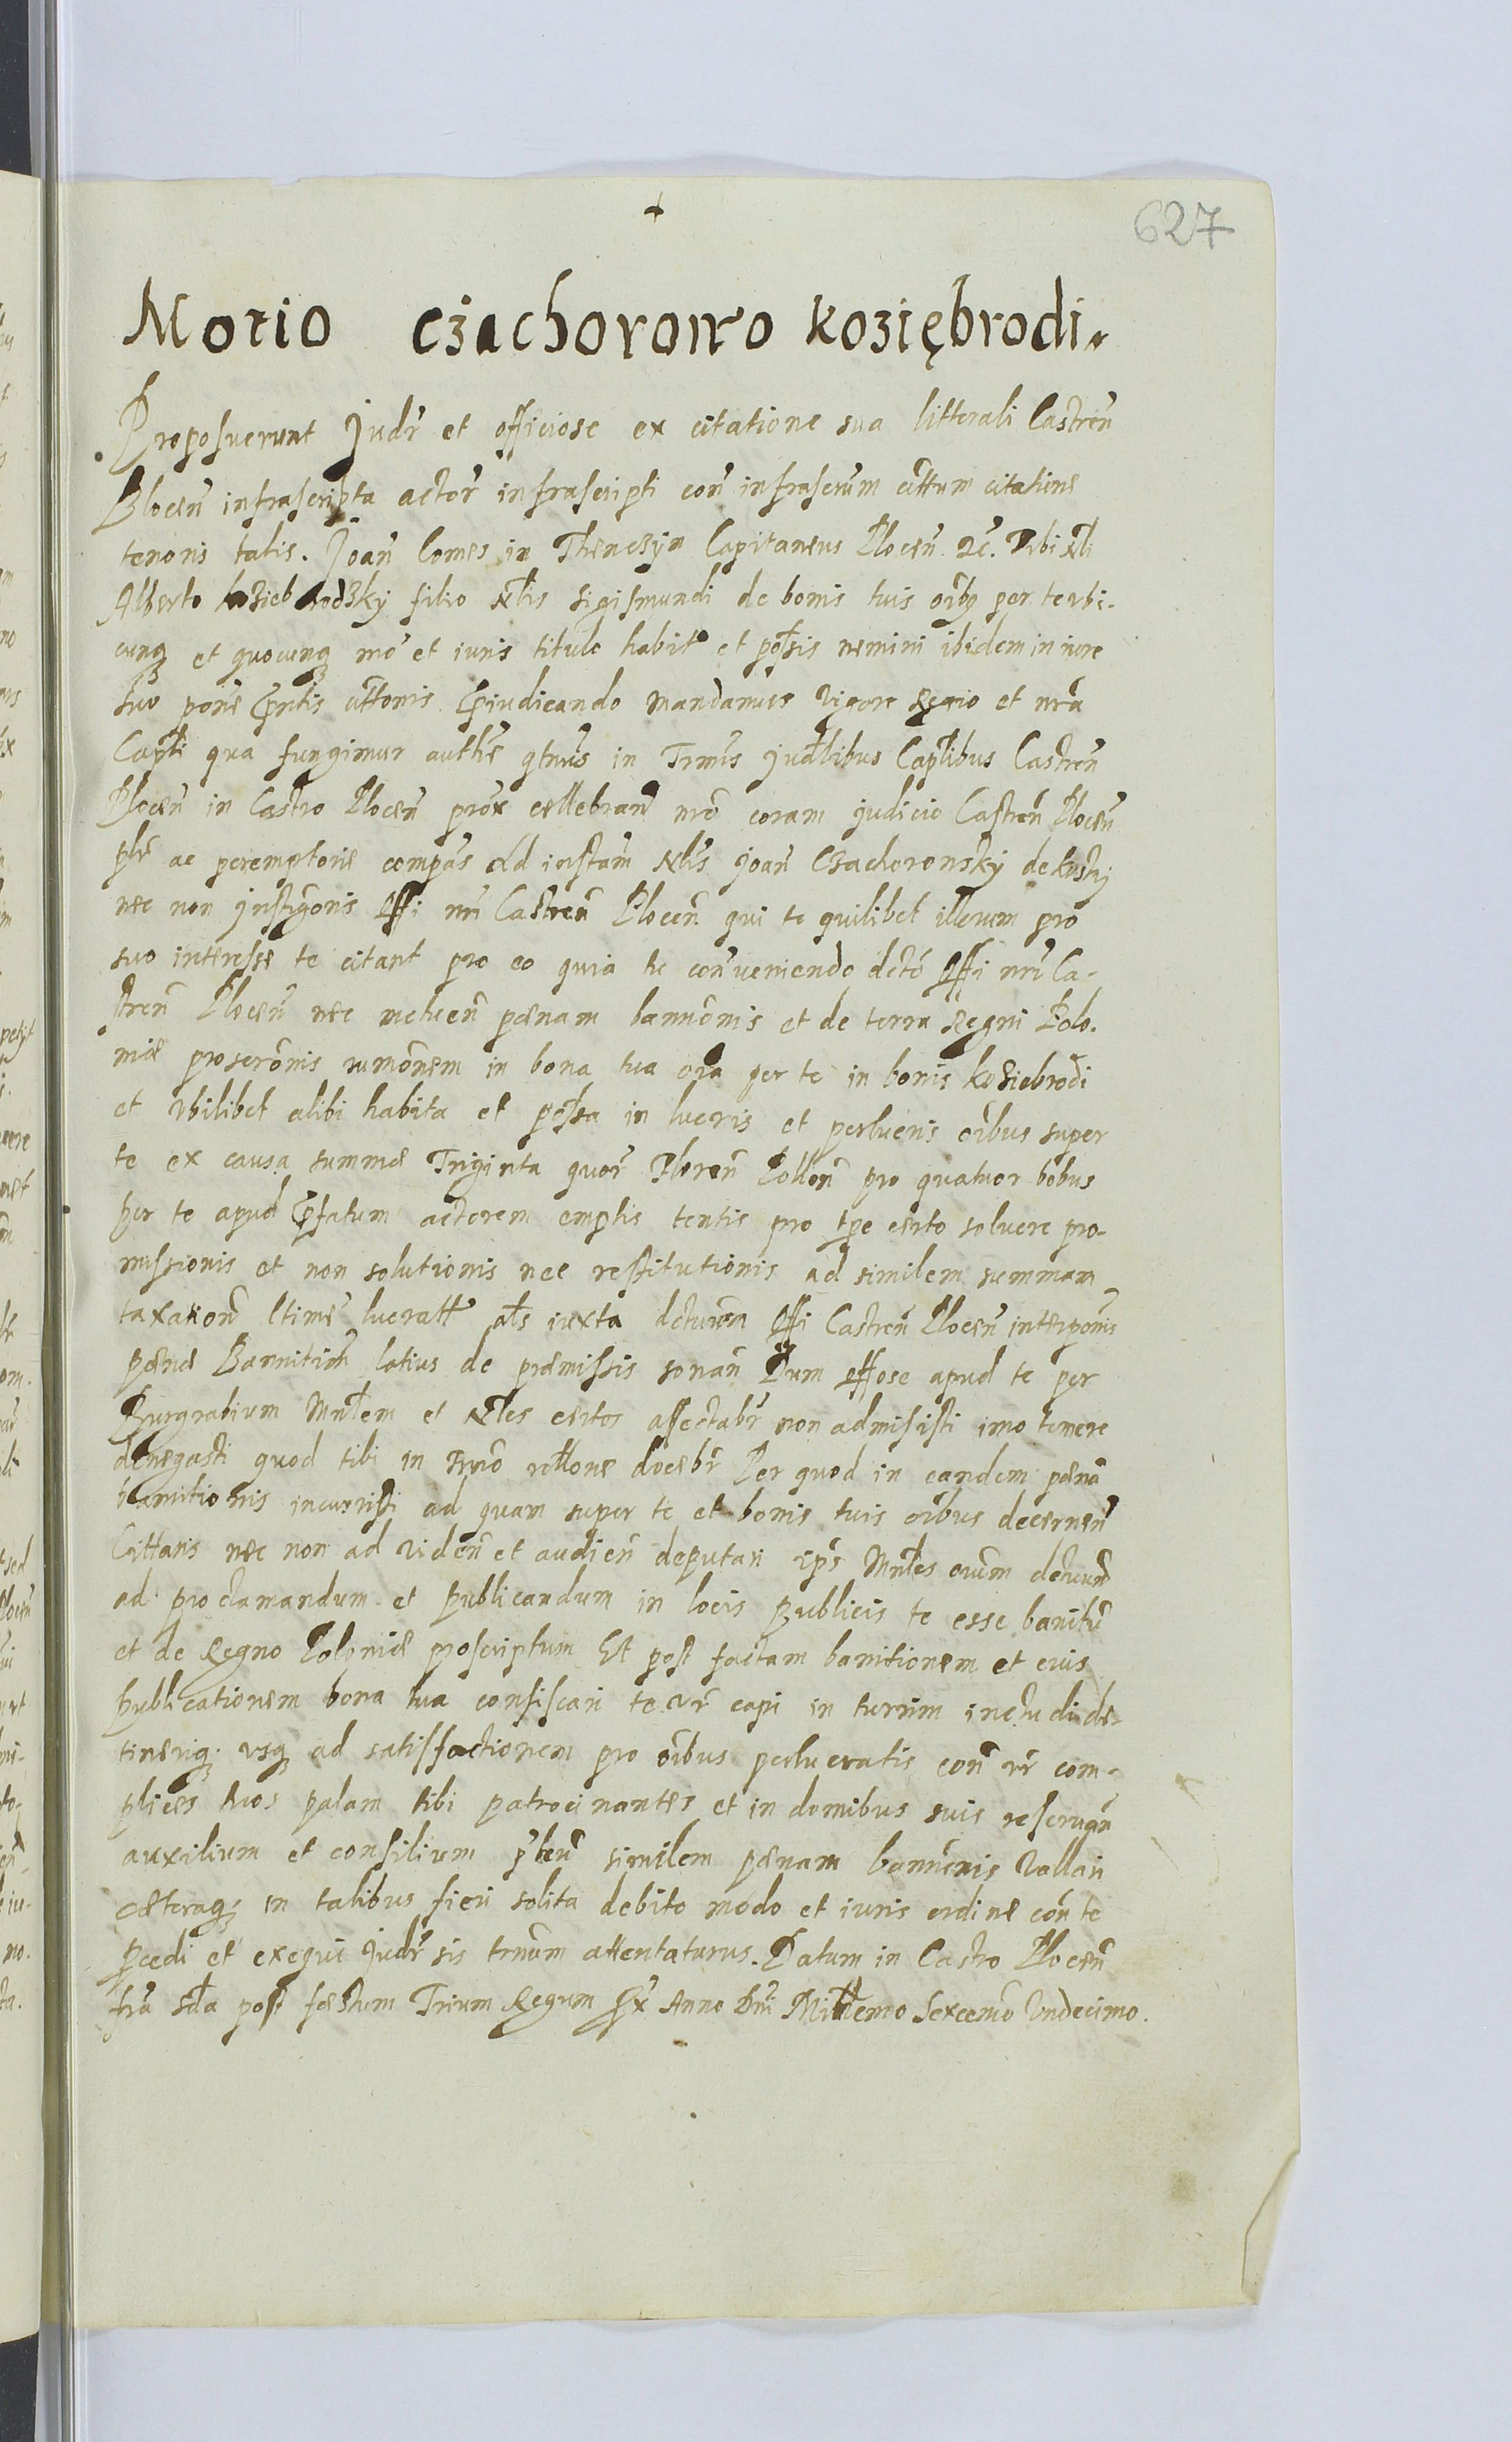 627
Motio czachorowo koziębrodi.
Proposuerunt Judr et officiose ex citatione sua litterali Castren
Plocen infrascripta actor infrascripti con infrascrum cittum citatione
tenoris talis. Joan Comes in Thenczyn Capitaneus Plocen. Tibi Nli
Alberto koziebrodzky filio Nlis Sigismundi de bonis tuis oibq per te vbi-
cunq et quocunq mo et iuris titulo habit et possis nemini ibidem in iure
suo pntis cittonis piudicando mandamus vigore Regio et nra
Capli qua fungimur authe qtnus in Trmis judlibus Caplibus Castren
Plocen in Castro Plocen prox cellebran nro coram judicio Castren Plocen
plr ac peremptorie compas Ad instam Nlis Joan Czachorowsky de
nec non jnstigoris Offi nri Castren Plocen qui te quilibet illorum pro
suo interesse te citant pro eo quia tu conueniendo dcto Offi nri Ca-
stren Plocen nec metuen pænam bannonis et de terra Regni Polo-
niæ proscronis rumonem in bona tua oia per te in bonis koziebrodi
et vbilibet alibi habita et possa in lucris et perlucris oibus super
te ex causa summæ Triginta quor Floren Pollon pro quatuor bobus
per te apud pfatum actorem emptis tentis pro tpe certo soluere pro-
missionis et non solutionis nec restitutionis ad similem summam
taxation ltime lucratt als iuxta Offi Castren Plocen interponis
pænæ Bannition latius de præmissis sonan Dum offose apud te per
Burgrabium Mnlem et Nles certos affectabr non admisisti imo temere
denegasti quod tibi in Trmo rellone docebr Per quod in eandem pæna
bannitionis incurristi ad quam super te et bonis tuis oibus decernen
Cittaris nec non ad viden et audien deputari ips Mnles
ad proclamandum et publicandum in locis publicis te esse banitu
et de Regno Poloniæ proscriptum Et post factam banitionem et eius
publicationem bona tua confiscari te vr capi in turrim includi de-
tineriq. vsq ad satisfactionem pro oibus perlucratis con vr com-
plices tuos palam tibi patrocinantes et in domibus suis reseruan
auxilium et consilium pben similem pænam bannonis vallari
cæteraq in talibus fieri solita debito modo et iuris ordine con te
pcedi et exequi judr sis trmum attentaturus. Datum in Castro Plocen
fria sda post fæstum Trium Regum Anno Dni Millemo Sexcemo Vndecimo.